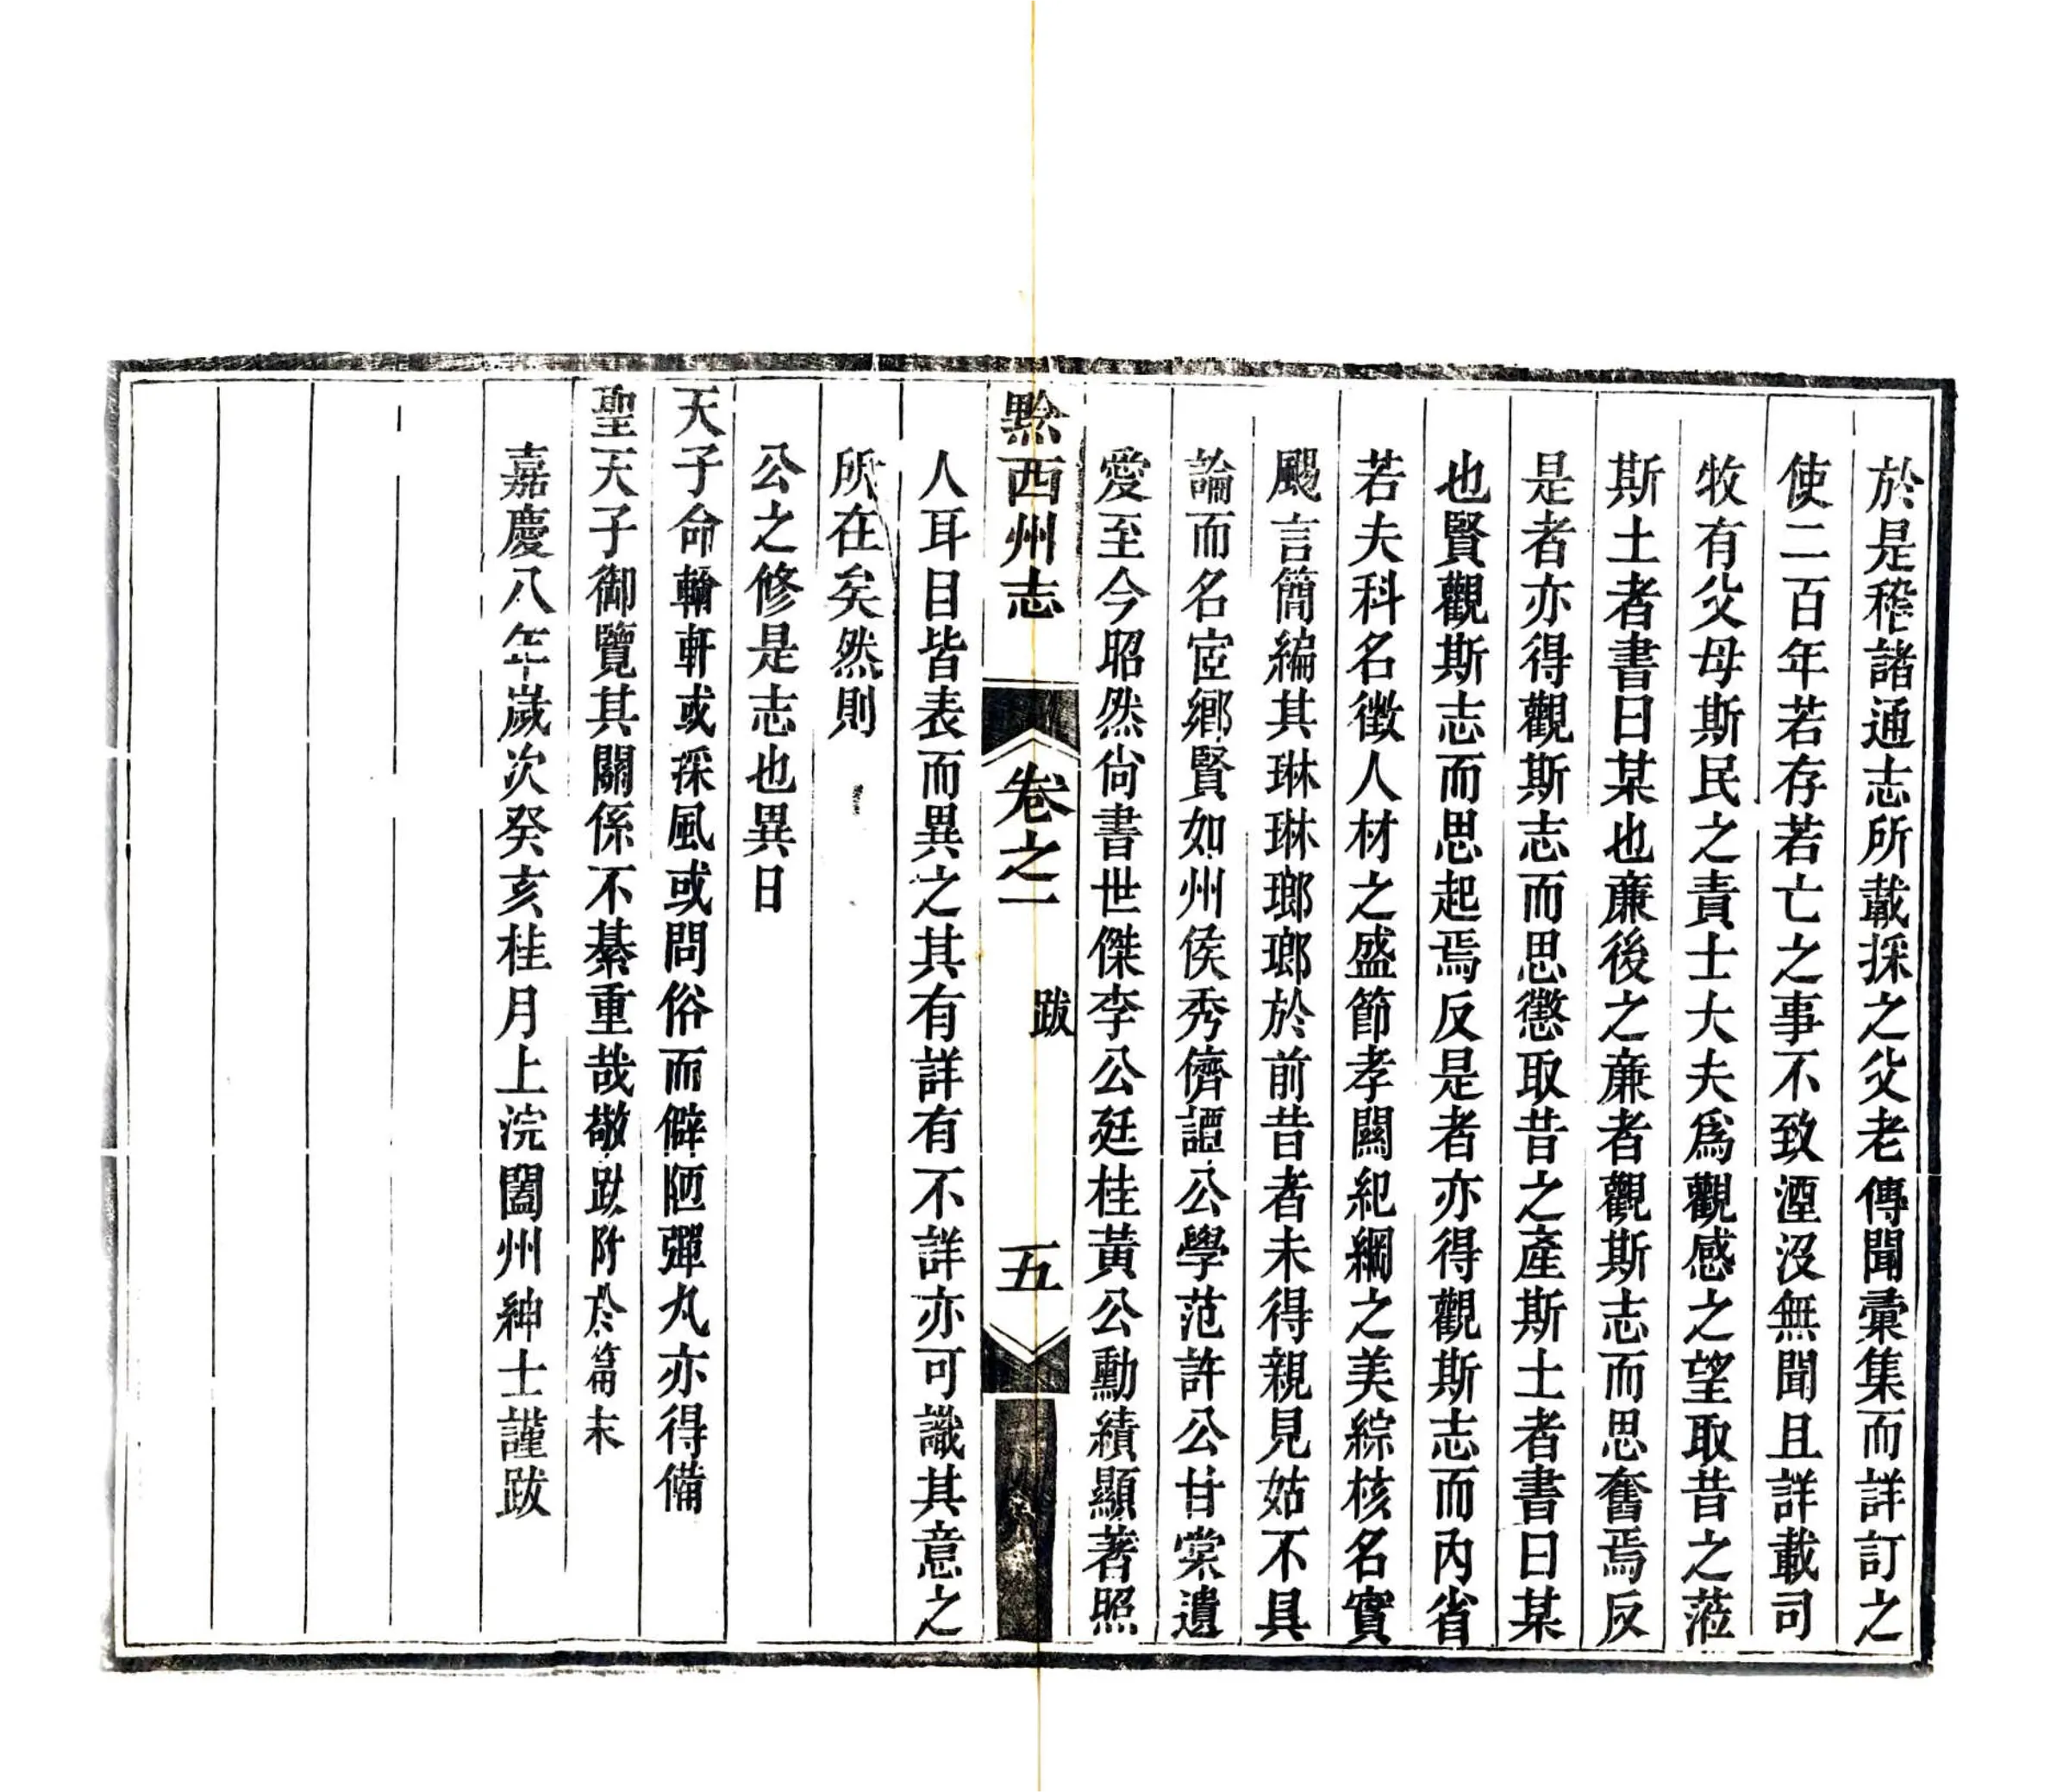 於是稽諸通志所載採之父老傳聞彙集而詳訂之
使二百年若存若亡之事不致湮沒無聞且詳載司
牧有父母斯民之責士大夫爲觀感之望取昔之蒞
斯土者書曰某也廉後之廉者觀斯志而思奮焉反
是者亦得觀斯志而思懲取昔之產斯土者書曰某
也賢觀斯志而思起焉反是者亦得觀斯志而內省
若夫科名徵人材之盛節孝關紀綱之美綜核名實
颺言簡編其琳琳瑯瑯於前昔者未得親見姑不具
論而名宦鄉賢如州侯秀儕譚公學范許公甘棠遺
愛至今昭然尙書世傑李公廷桂黃公勳績顯著照
黔西州志
卷之一
跋
五
人耳目皆表而異之其有詳有不詳亦可識其意之
所在矣然則
公之修是志也異日
天子命輶軒或採風或問俗而僻陋彈丸亦得備
聖天子御覽其關係不綦重哉敬跋附於篇末
嘉慶八年歲次癸亥桂月上浣闔州紳士謹跋